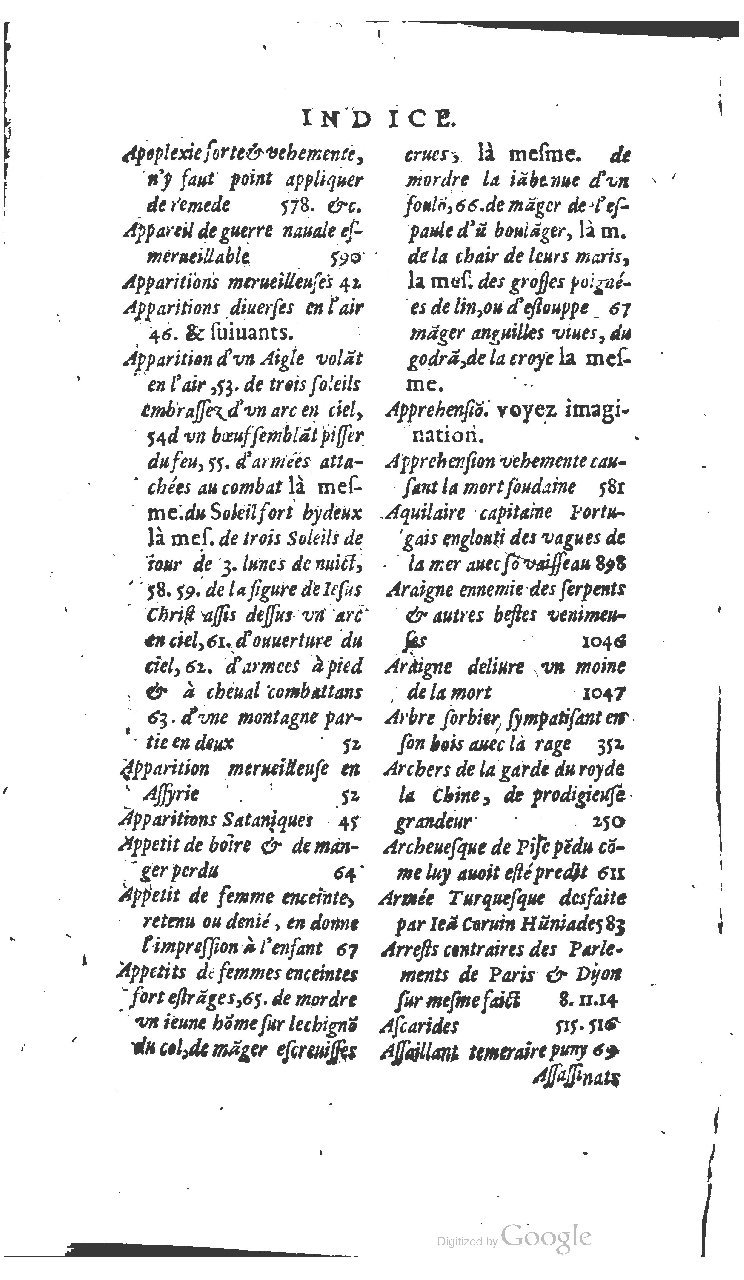 INDICE.
Apoplexie forte & vehemente,
n'y faut point appliquer
de remede 578. &c.
Appareil de guerre nauale eſ-
merueillable 590
Apparitions merueilleuſes 42
Apparitions diuerſes en l'air
46. & ſuiuants.
Apparition d'vn Aigle volāt
en l'air, 53. de trois ſoleils
embraſſez d'vn arc en ciel,
54 d vn bœuf ſemblāt piſſer
du feu, 55. d'armées atta-
chées au combat là meſ-
me. du Soleil fort hydeux
là meſ. de trois Soleils de
iour de 3. lunes de nuict,
58. 59. de la figure de Ieſus
Chriſt aſſis deſſus vn arc
en ciel, 61. d'ouuerture du
ciel, 62. d'armees à pied
& à cheual combattans
63. d'vne montagne par-
tie en deux 52
Apparition merueilleuſe en
Aſſyrie 52
Apparitions Sataniques 45
Appetit de boire & de man-
ger perdu 64
Appetit de femme enceinte,
retenu ou denié, en donne
l'impreſſion à l'enfant 67
Appetits de femmes enceintes
fort eſtrāges, 65. de mordre
vn ieune hōme ſur le chignō
du col, de māger eſcreuiſſes
crues, là meſme. de
mordre la iābe nue d'vn
foulō, 66. de māger de l'eſ-
paule d'ū boulāger, là m.
de la chair de leurs maris,
la meſ. des groſſes poigné-
es de lin, ou d'eſtouppe 67
māger anguilles viues, du
godrā, de la croye la meſ-
me.
Apprehenſiō. voyez imagi-
nation.
Apprehenſion vehemente cau-
ſant la mort ſoudaine 581
Aquilaire capitaine Portu-
gais englouti des vagues de
la mer auec ſō vaiſſeau 898
Araigne ennemie des ſerpents
& autres beſtes venimeu-
ſes 1046
Araigne deliure vn moine
de la mort 1047
Arbre ſorbier, ſympatiſant en
ſon bois auec là rage 352
Archers de la garde du roy de
la Chine, de prodigieuſe
grandeur 250
Archeueſque de Piſe pēdu cō-
me luy auoit eſté predit 611
Armée Turqueſque desfaite
par Ieā Coruin Hūniade 583
Arreſts contraires des Parle-
ments de Paris & Dijon
ſur meſme faict 8. 11. 14
Aſcarides 515. 516
Aſſaillant temeraire puny 69
Aſſaſſinats
Digitized by Google